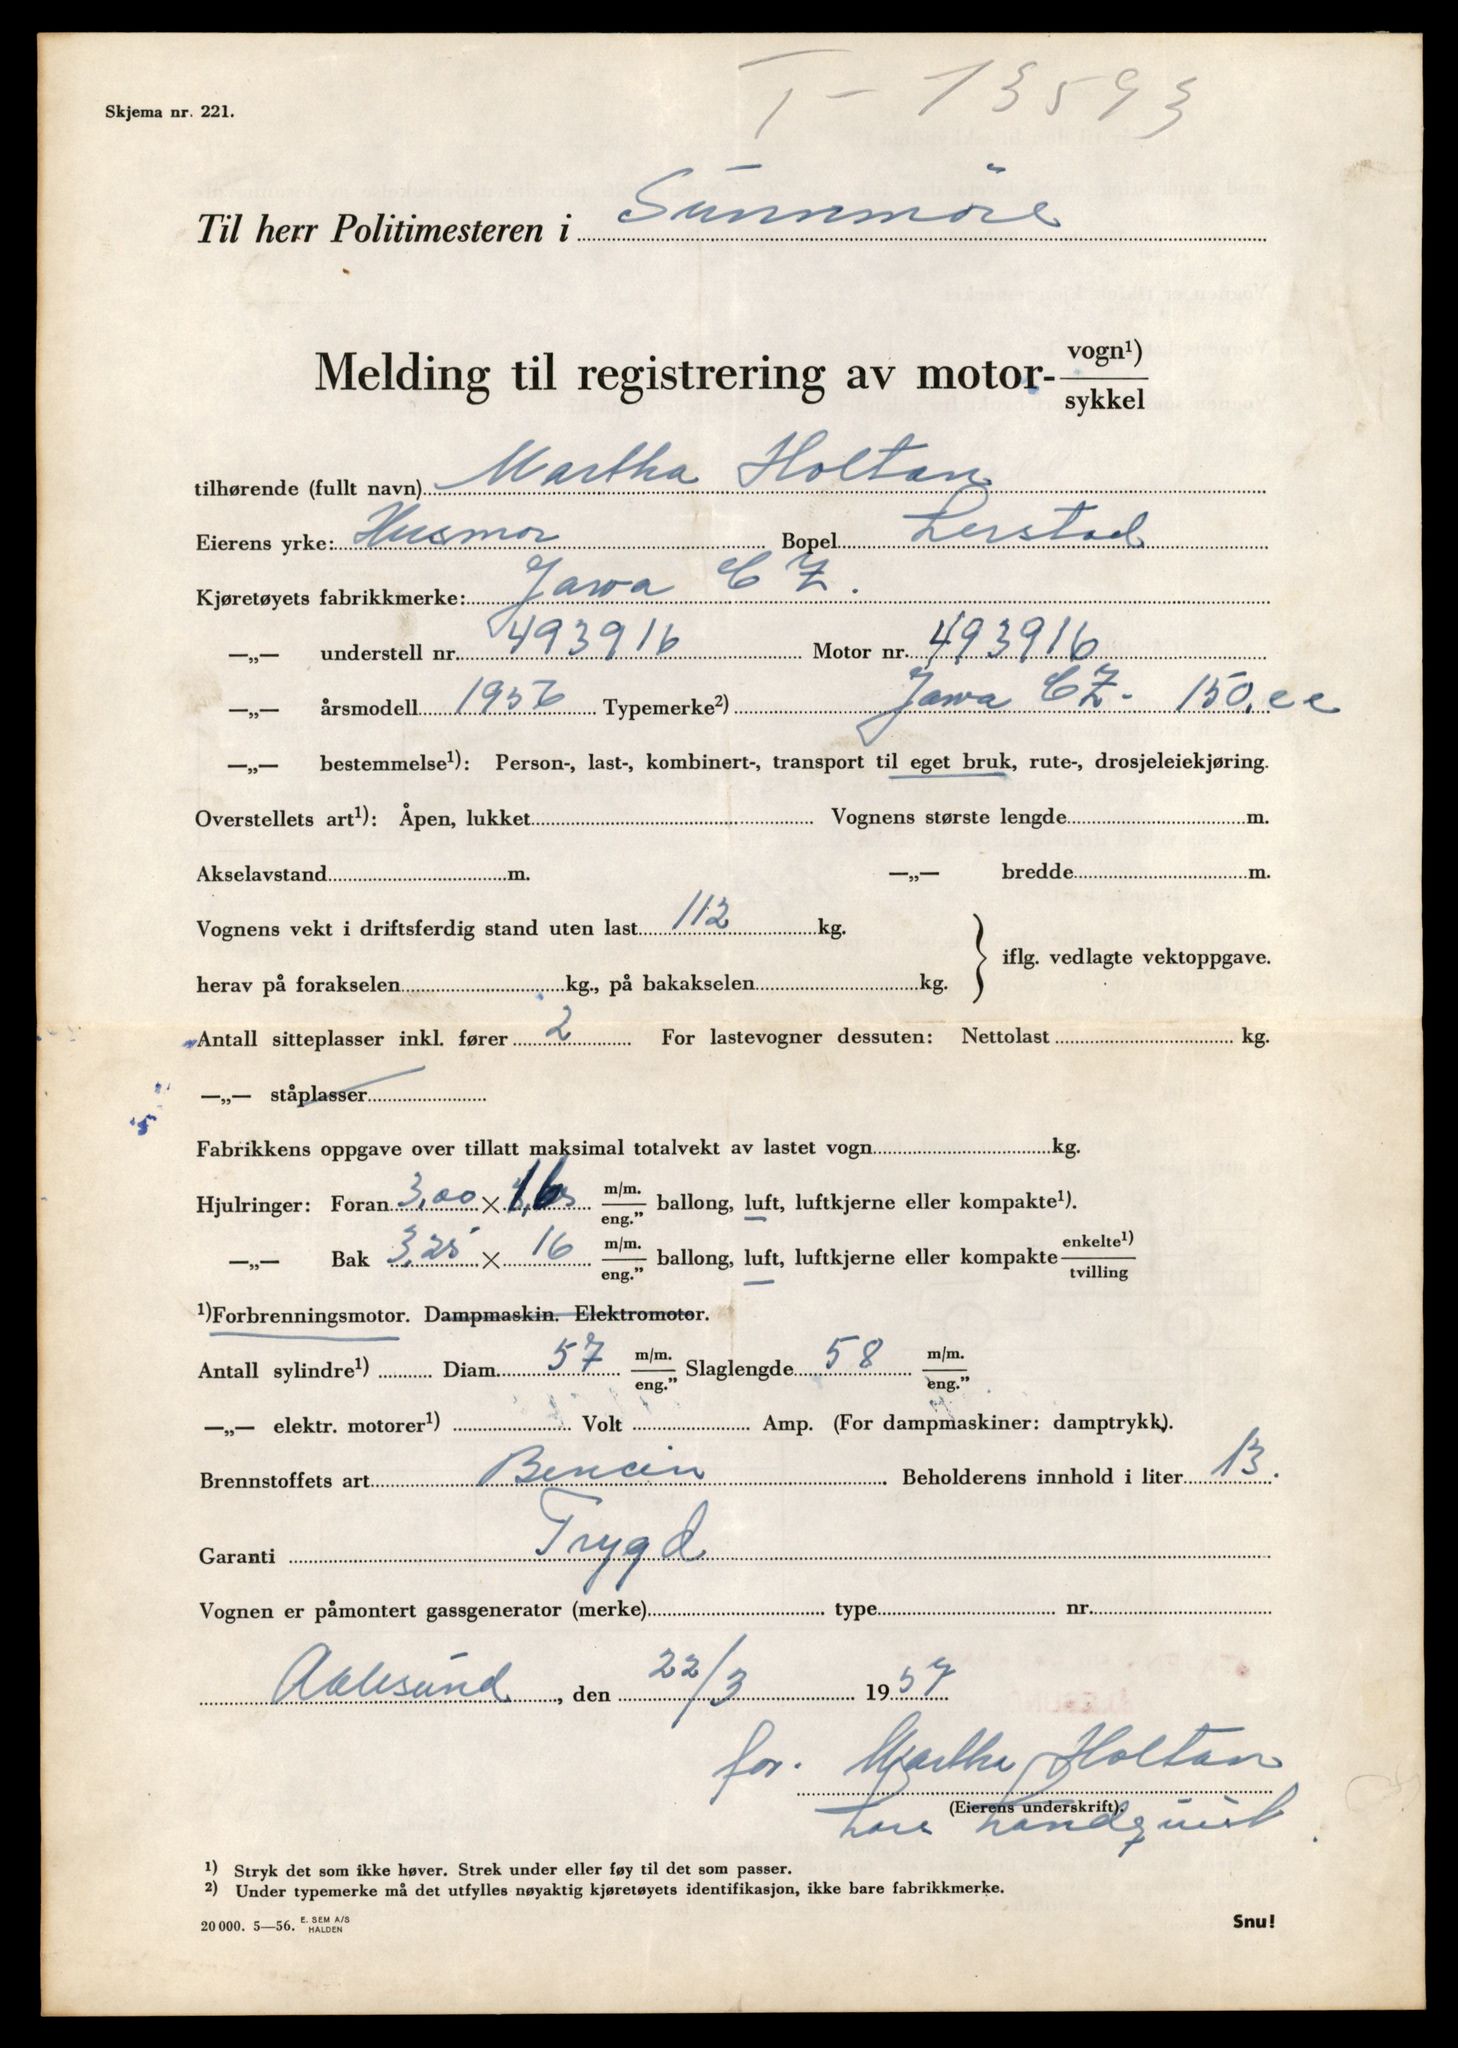 T - 13593
Skjema nr. 221.
Til herr Politimesteren i Sunnmöre
Melding til registrering av motor- vogn¹) / sykkel
tilhørende (fullt navn) Martha Holtan
Eierens yrke: Husmor Bopel Lerstad
Kjøretøyets fabrikkmerke: Jawa CZ.
—„— understell nr. 493916 Motor nr. 493916
—„— årsmodell 1956 Typemerke²) Jawa CZ - 150.cc
—„— bestemmelse¹): Person-, last-, kombinert-, transport til eget bruk, rute-, drosjeleiekjøring.
Overstellets art¹): Åpen, lukket Vognens største lengde m.
Akselavstand m. —„— bredde m.
Vognens vekt i driftsferdig stand uten last 112 kg.
iflg. vedlagte vektoppgave.
herav på forakselen kg., på bakakselen kg.
Antall sitteplasser inkl. fører 2 For lastevogner dessuten: Nettolast kg.
—„— ståplasser
Fabrikkens oppgave over tillatt maksimal totalvekt av lastet vogn kg.
Hjulringer: Foran 3,00 × 16 m/m. / eng.” ballong, luft, luftkjerne eller kompakte¹).
—„— Bak 3,25 × 16 m/m. / eng.” ballong, luft, luftkjerne eller kompakte enkelte¹) / tvilling
¹)Forbrenningsmotor. Dampmaskin. Elektromotor.
Antall sylindre¹) Diam. 57 m/m. / eng.” Slaglengde 58 m/m. / eng.”
—„— elektr. motorer¹) Volt Amp. (For dampmaskiner: damptrykk).
Brennstoffets art Bencin Beholderens innhold i liter 13.
Garanti Trygd
Vognen er påmontert gassgenerator (merke) type nr.
Aalesund, den 22/3 1957
for. Martha Holtan
(Eierens underskrift).
Landquist
¹) Stryk det som ikke høver. Strek under eller føy til det som passer.
²) Under typemerke må det utfylles nøyaktig kjøretøyets identifikasjon, ikke bare fabrikkmerke.
20 000. 5—56. E. SEM A/S HALDEN
Snu!